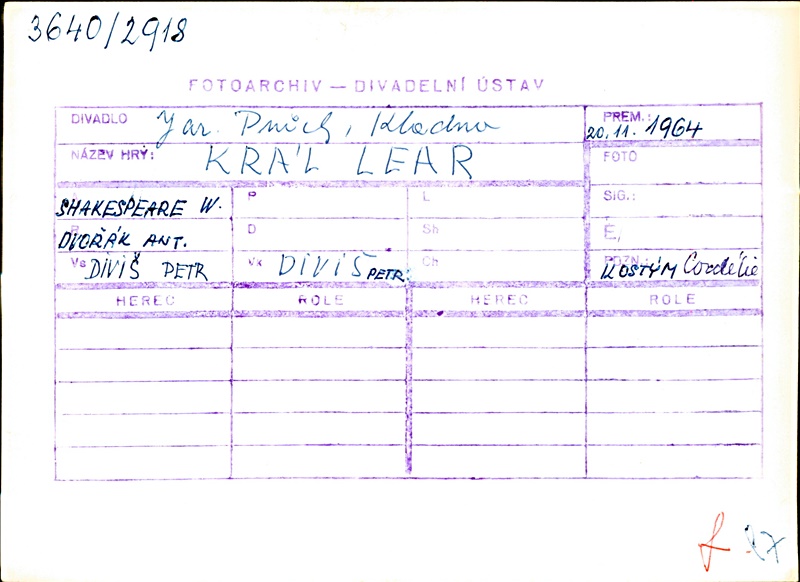 3640/2918
FOTOARCHIV — DIVADELNÍ ÚSTAV
DIVADLO Jar. Průch, Kladno PREM.: 20.11. 1964
NÁZEV HRY: KRÁL LEAR FOTO
SHAKESPEARE W. P L SIG.:
R DVOŘÁK ANT. D Sb Č,
Vs DIVIŠ PETR Vk DIVIŠ PETR Ch POZN.: KOSTÝM Cordélie
HEREC ROLE HEREC ROLE
f